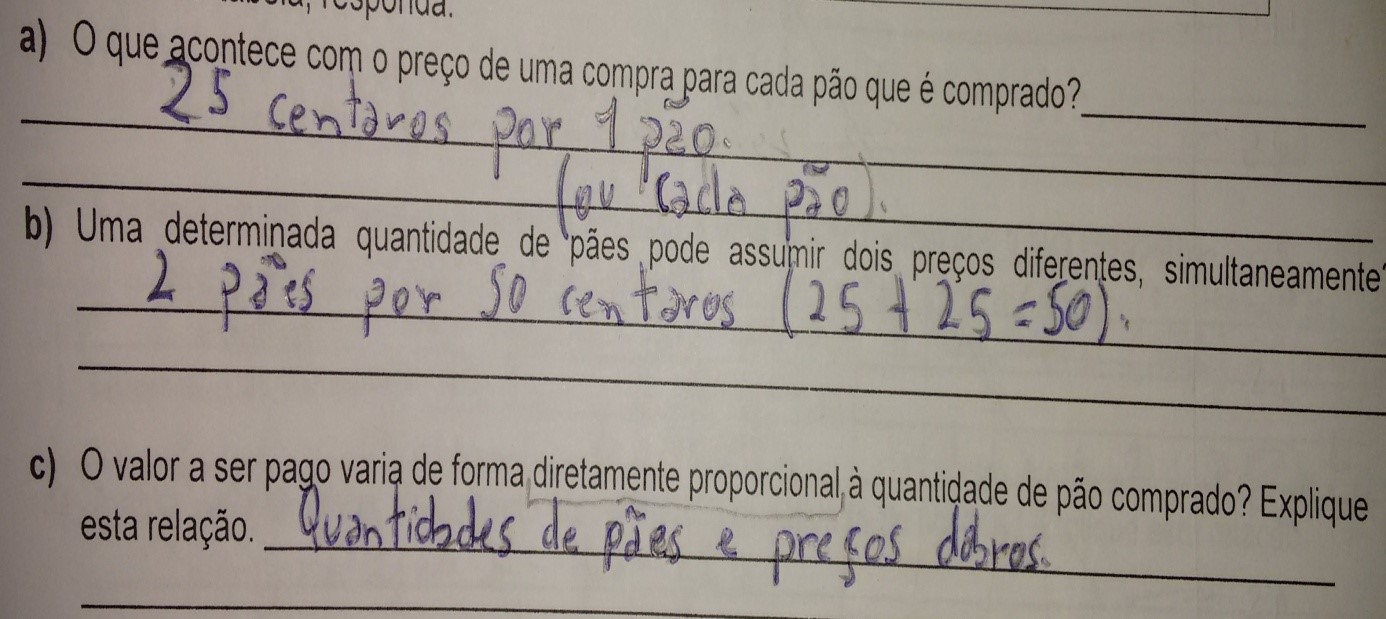 responda.
a) O que acontece com o preço de uma compra para cada pão que é comprado?
25 centavos por 1 pão.
(ou cada pão).
b) Uma determinada quantidade de pães pode assumir dois preços diferentes, simultaneamente?
2 pães por 50 centavos (25 + 25 = 50).
c) O valor a ser pago varia de forma diretamente proporcional à quantidade de pão comprado? Explique
esta relação. Quantidades de pães e preços dobros.